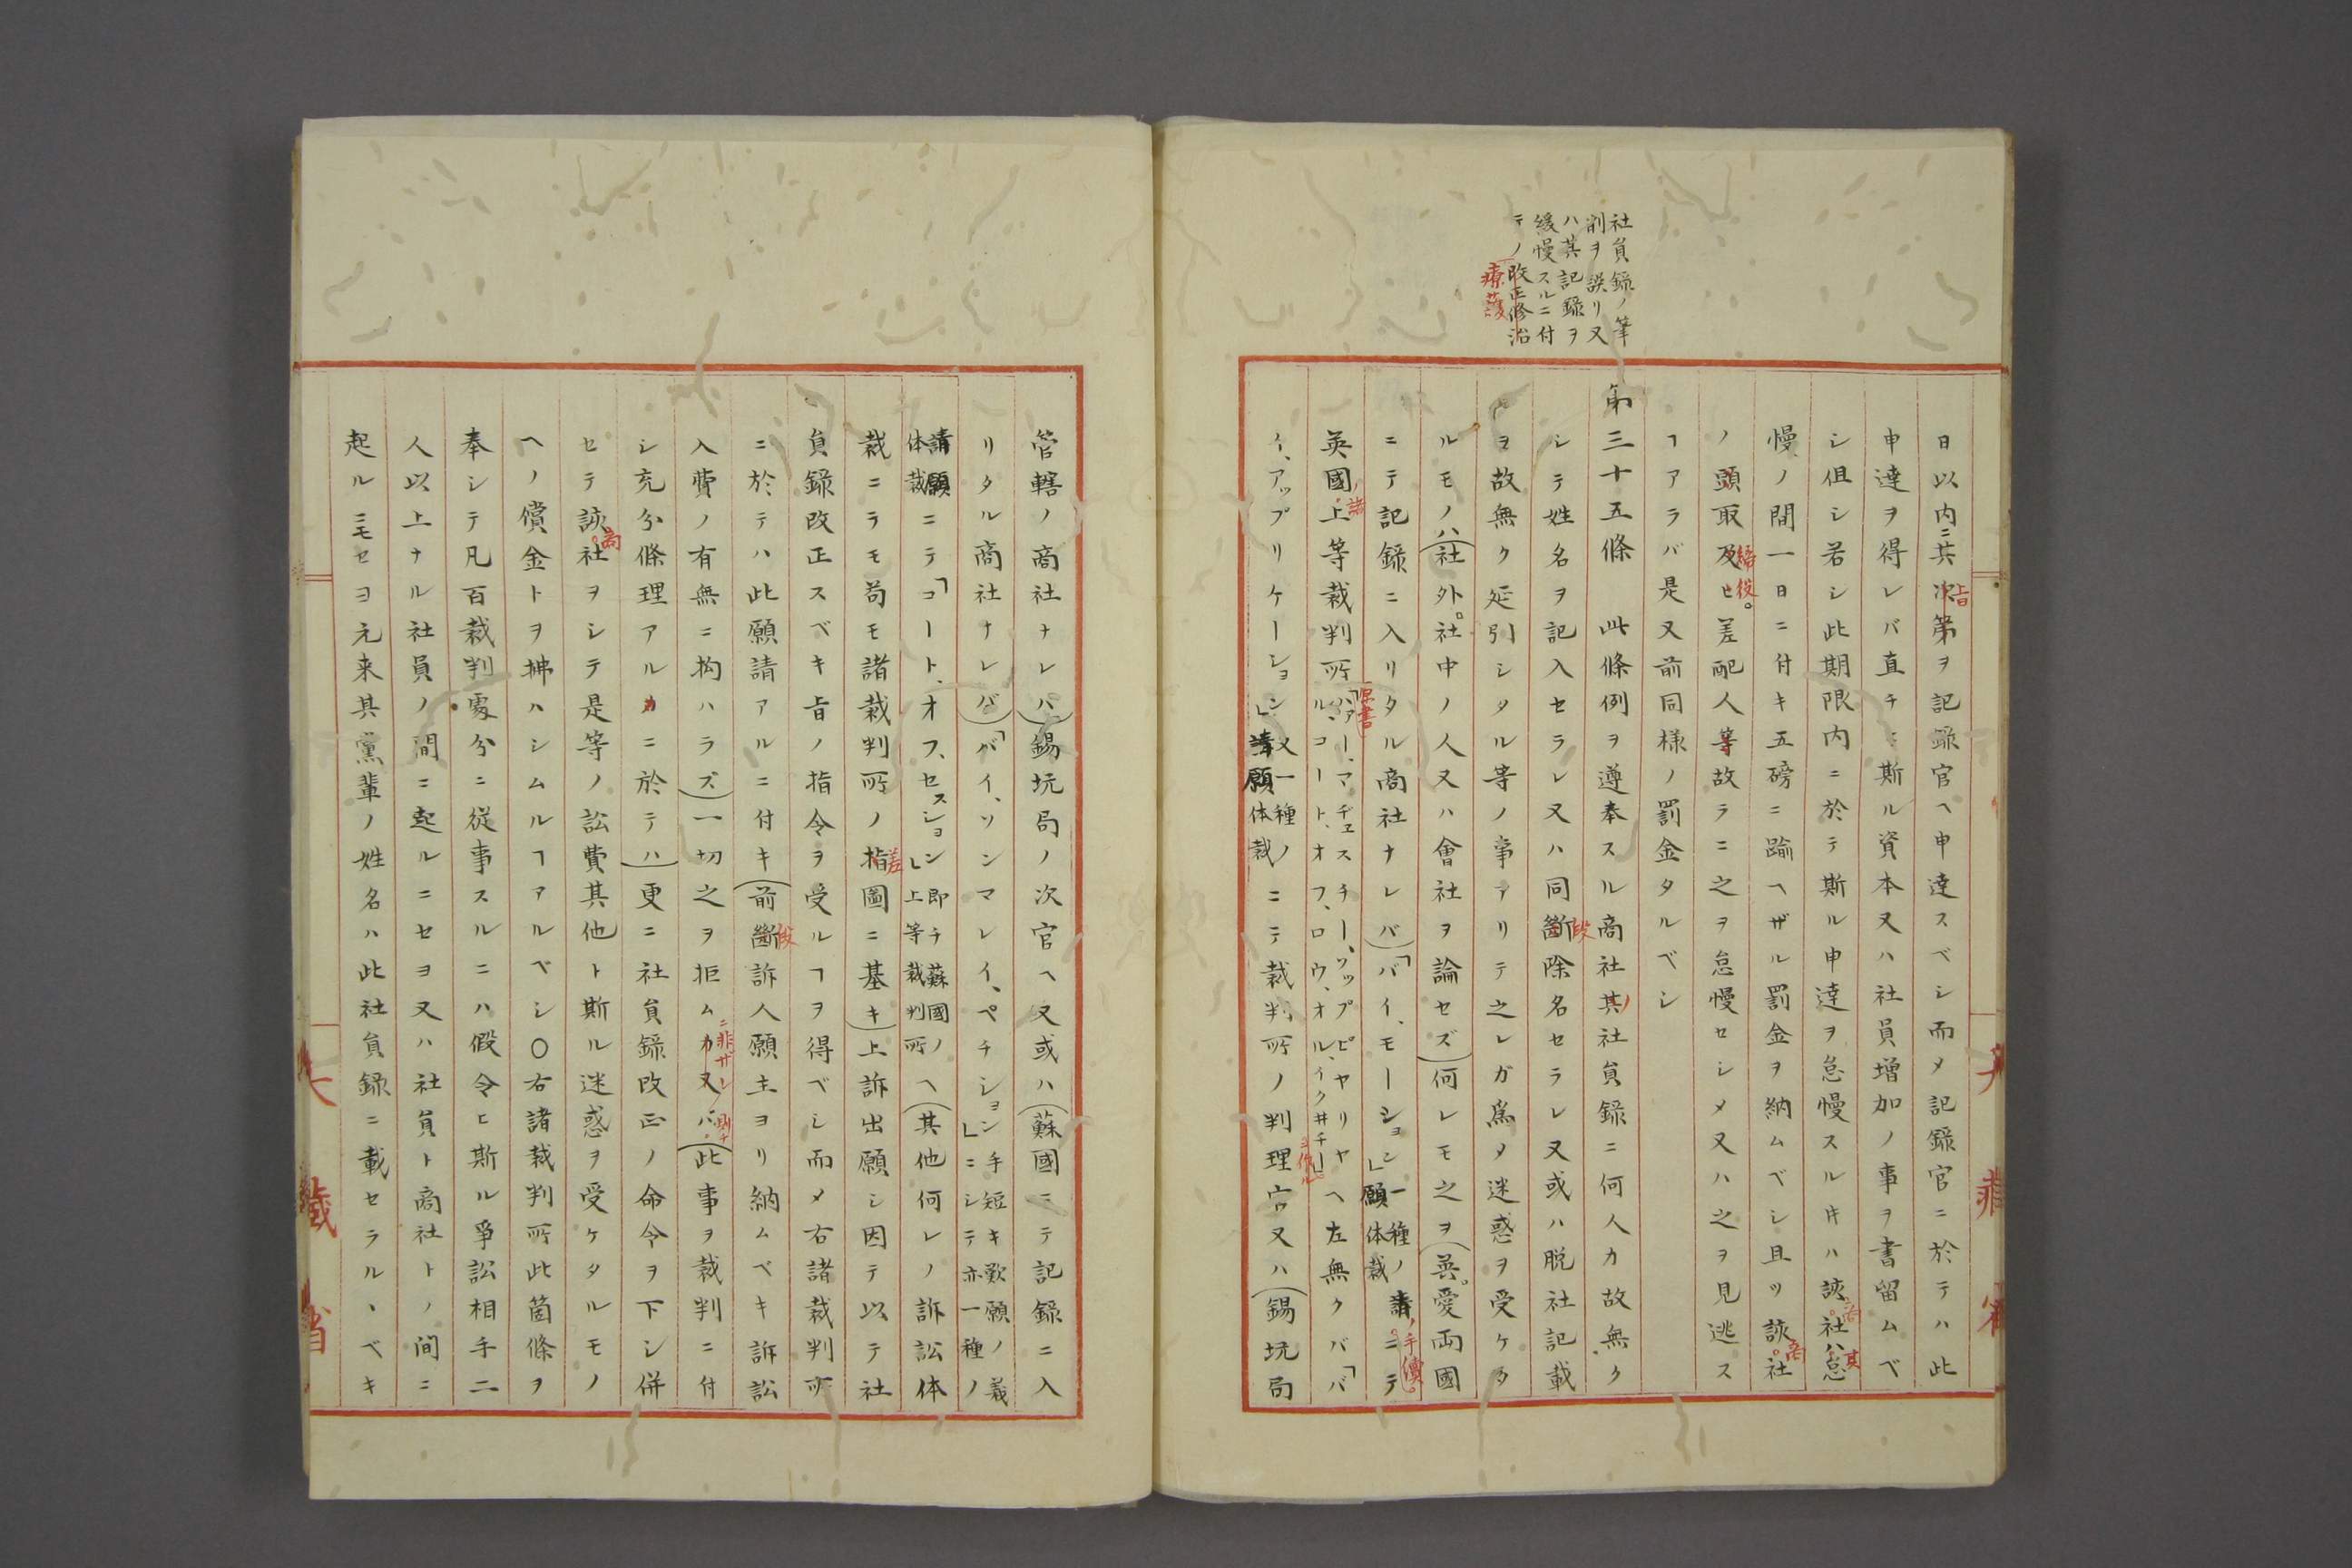 社員録ノ筆
削ヲ誤リ又
ハ其記録ヲ
緩慢スルニ付
テノ改正修治
療護
日以内ニ其次第ヲ記録官ヘ申達スベシ而メ記録官ニ於テハ此
申達ヲ得レバ直チニ斯ル資本又ハ社員増加ノ事ヲ書留ムベ
シ但シ若シ此期限内ニ於テ斯ル申達ヲ怠慢スルキハ該社ハ怠
慢ノ間一日ニ付キ五磅ニ踰ヘザル罰金ヲ納ムベシ且ツ該社
ノ頭取及ヒ差配人等故ラニ之ヲ怠慢セシメ又ハ之ヲ見逃ス
ヿアラバ是又前同様ノ罰金タルベシ
第三十五條 此條例ヲ遵奉スル商社其社員録ニ何人カ故無ク
シテ姓名ヲ記入セラレ又ハ同斷除名セラレ又或ハ脱社記載
ヲ故無ク延引シタル等ノ事アリテ之レガ為メ迷惑ヲ受ケタ
ルモノハ(社外社中ノ人又ハ會社ヲ論セズ)何レモ之ヲ(英愛両國
ニテ記録ニ入リタル商社ナレバ)「バイ、モーション」一種ノ請願体裁ニテ
英國上等裁判所「ハアー、マヂェスチー、ソップピヤリヤル、コート、オフ、ロウ、オル、イクヰチー」ヘ左無クバ「バ
イ、アップリケーション」又一種ノ請願体裁ニテ裁判所ノ判理官又ハ(錫坑局
管轄ノ商社ナレハ)錫坑局ノ次官ヘ又或ハ(蘇國ニテ記録ニ入
リタル商社ナレバ)「バイ、ソンマレイ、ペチション」手短キ歎願ノ義ニシテ亦一種ノ
請願体裁ニテ「コート、オフ、セスション」即チ蘇國ノ上等裁判所ヘ(其他何レノ訴訟体
裁ニラモ苟モ諸裁判所ノ指圖ニ基キ)上訴出願シ因テ以テ社
員録改正スベキ旨ノ指令ヲ受ルヿヲ得ベシ而メ右諸裁判所
ニ於テハ此願請アルニ付キ(前斷訴人願主ヨリ納ムベキ訴訟
入費ノ有無ニ拘ハラズ)一切之ヲ拒ムカ又ハ(此事ヲ裁判ニ付
シ充分條理アルカニ於テハ)更ニ社員録改正ノ命令ヲ下シ併
セテ該社ヲシテ是等ノ訟費其他ト斯ル迷惑ヲ受ケタルモノ
ヘノ償金トヲ拂ハシムルヿアルベシ〇右諸裁判所此箇條ヲ
奉シテ凡百裁判處分ニ従事スルニハ假令ヒ斯ル爭訟相手二
人以上ナル社員ノ間ニ起ルニセヨ又ハ社員ト商社トノ間ニ
起ルニモセヨ元来其黨輩ノ姓名ハ此社員録ニ載セラルヽベキ